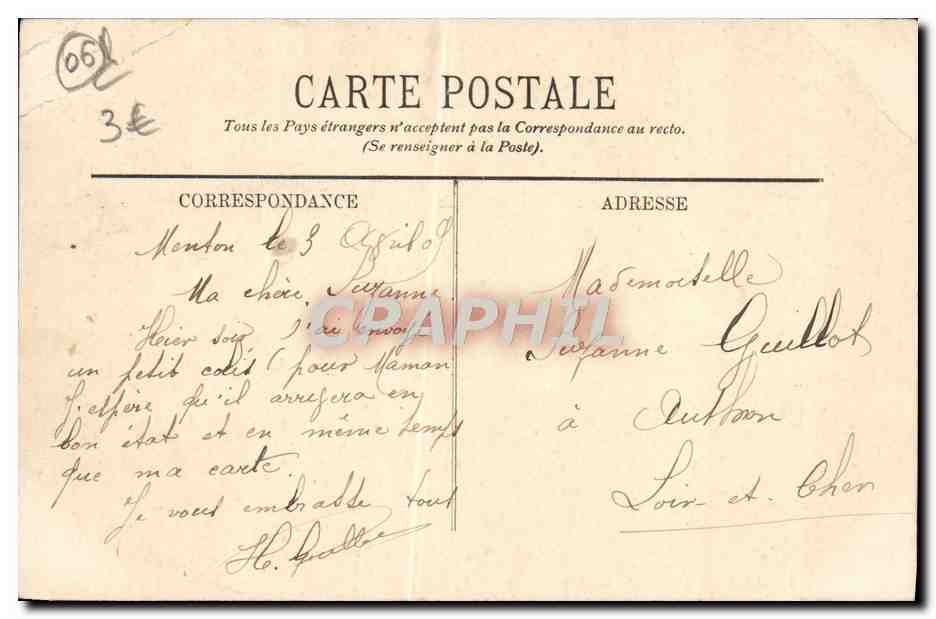 06
3€
CARTE POSTALE
Tous les Pays étrangers n'acceptent pas la Correspondance au recto.
(Se renseigner à la Poste).
CORRESPONDANCE
Menton le 3 Avril
Ma chère Suzanne
Hier soir j'ai envoyé
un petit colis pour Maman
J'espère qu'il arrivera en
bon état et en même temps
que ma carte.
Je vous embrasse tous
H. Guillot
ADRESSE
Mademoiselle
Suzanne Guillot
à Authon
Loir-et-Cher
CPAPHIL